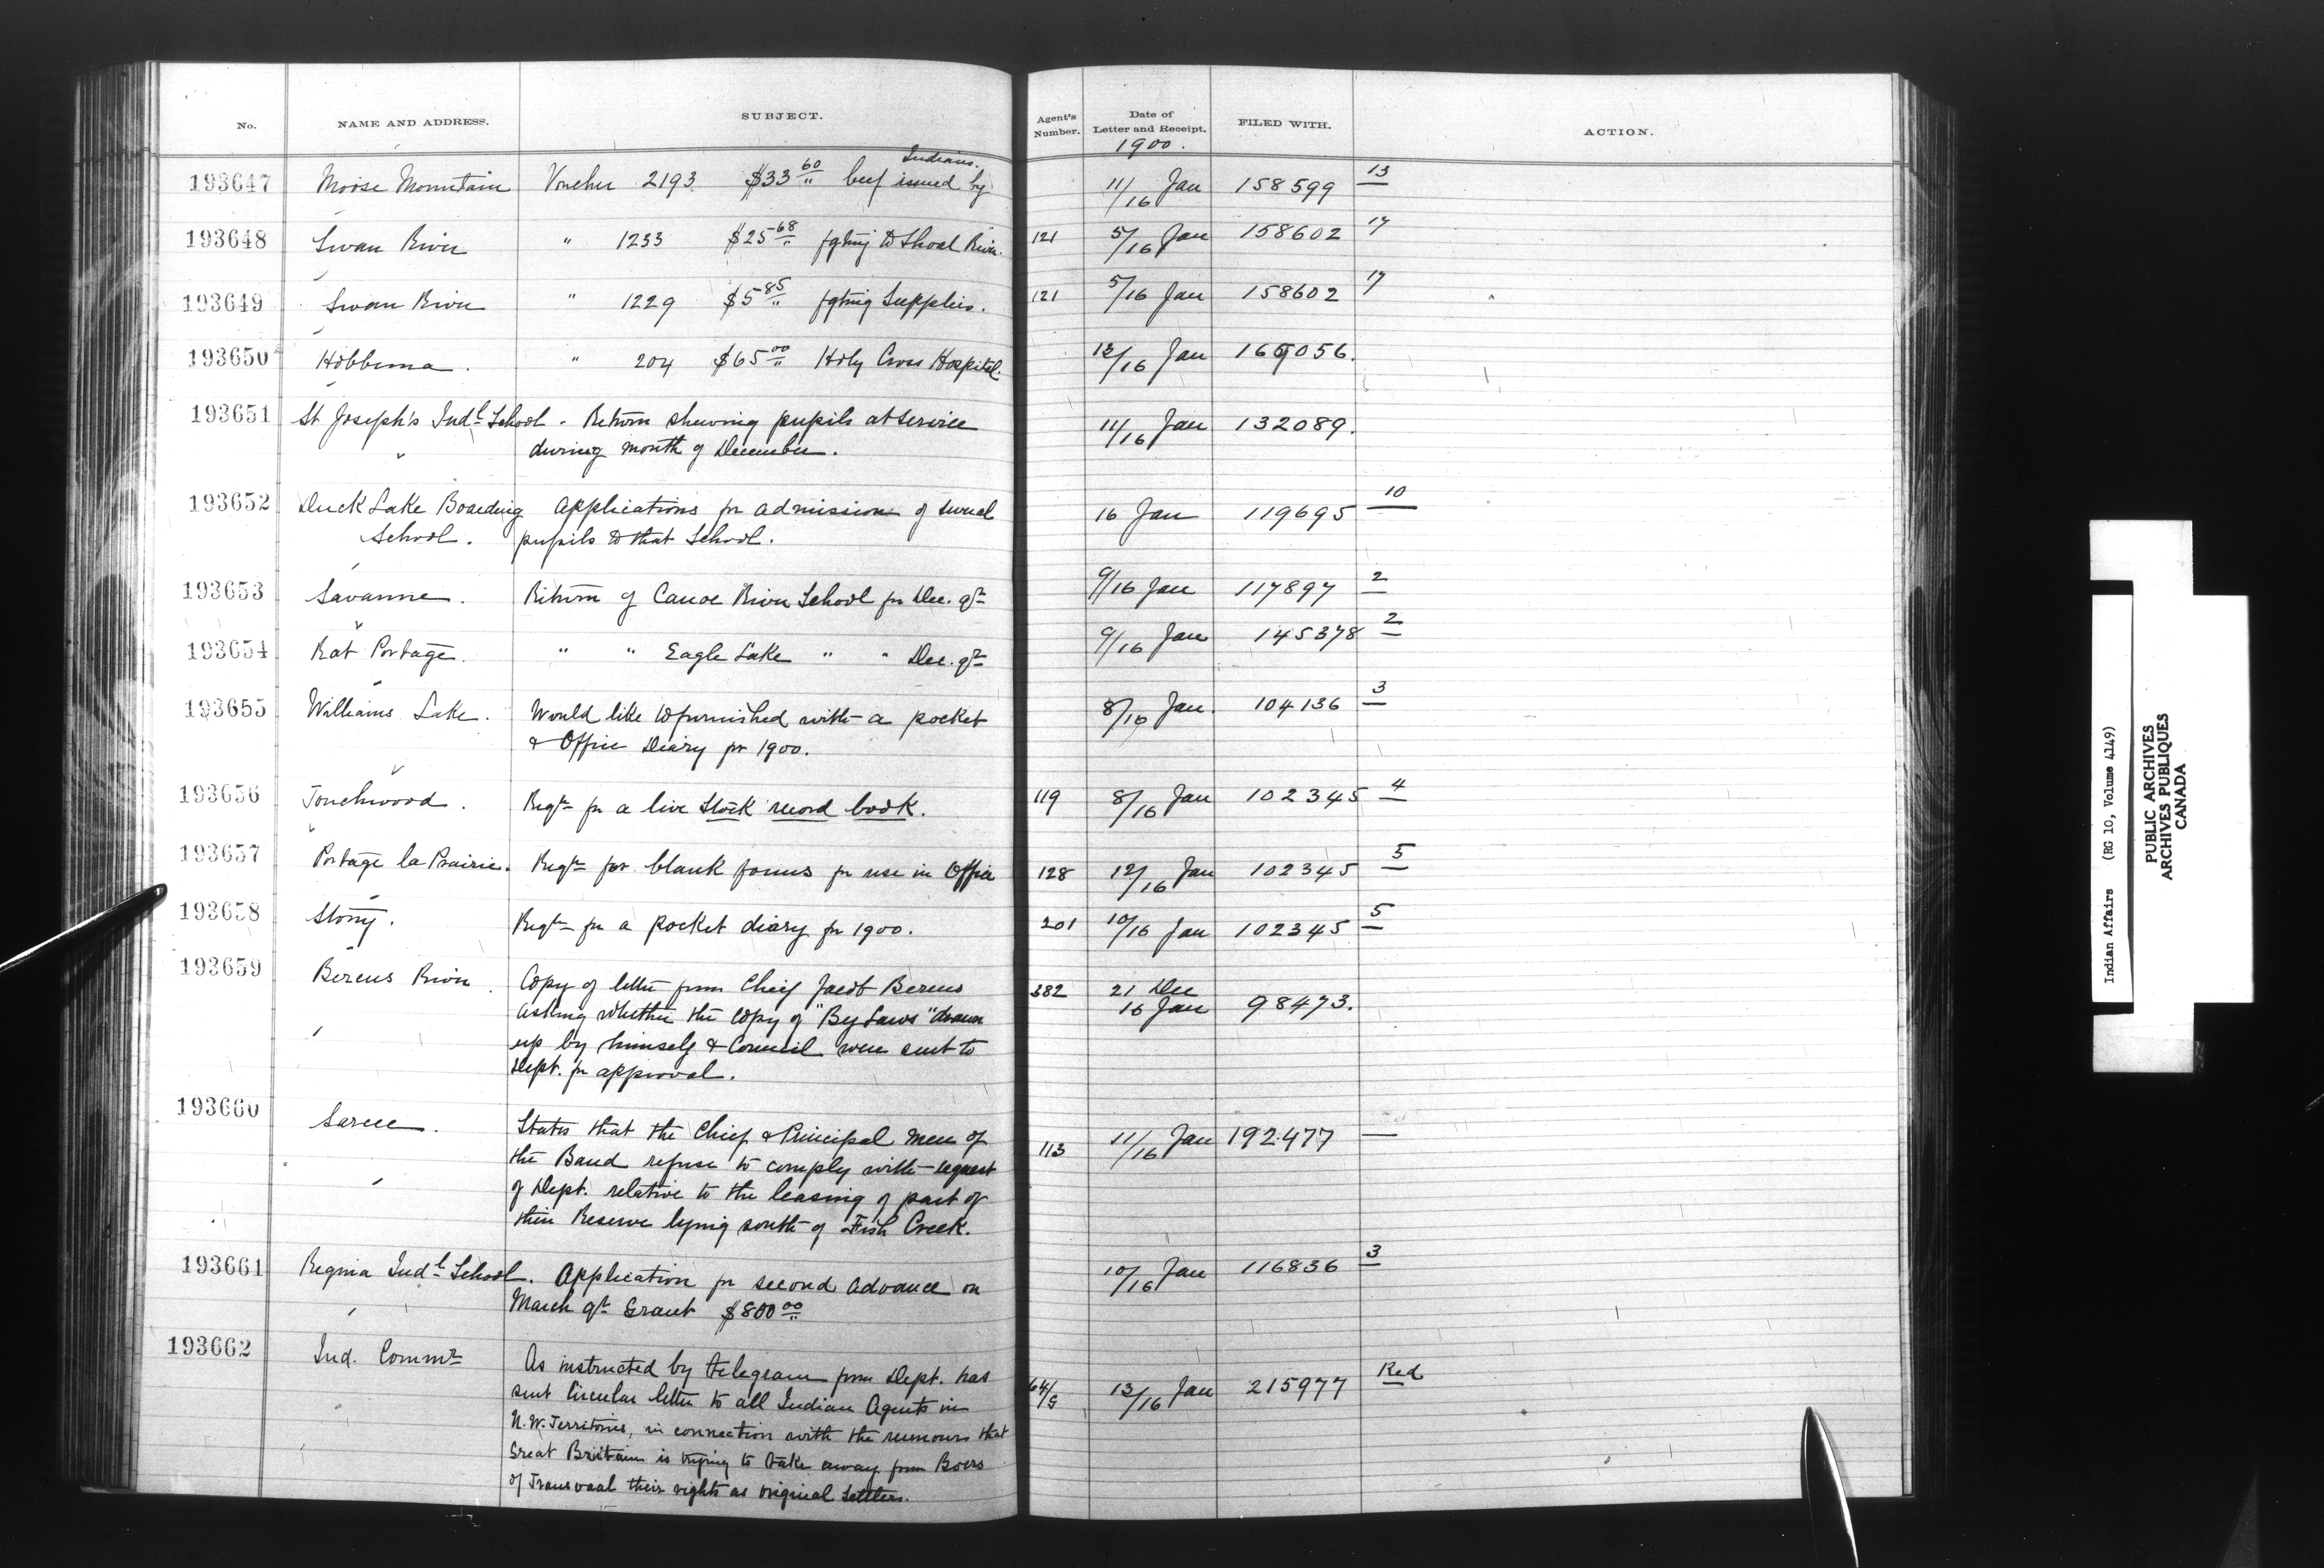 No. NAME AND ADDRESS. SUBJECT. Agent's Number. Date of Letter and Receipt. FILED WITH. ACTION.
1900.
Indians.
193647 Moose Mountain Voucher 2193 $33 60/" beef issued by 11/16 Jan 158599 13
193648 Swan River " 1233 $25 68/" fgting to Shoal River. 121 5/16 Jan 158602 17
193649 Swan River " 1229 $5 85/" fgting Supplies. 121 5/16 Jan 158602 17
193650 Hobbema. " 204 $65 00/" Holy Cross Hospital. 12/16 Jan
193651 St Joseph's Indl School. Return shewing pupils at service 11/16 Jan 132089.
during month of December.
193652 Duck Lake Boarding Applications for admission of several 16 Jan 119695 10
School. pupils to that School.
193653 Savanne. Return of Canoe River School for Dec. qr 9/16 Jan 117897 2
193654 Rat Portage. " " Eagle Lake " " Dec. qr 9/16 Jan 145378 2
193655 Williams Lake. Would like to furnished with a pocket 8/16 Jan. 104136 3
& Office Diary for 1900.
193656 Touchwood. Reqn for a live stock record book. 119 8/16 Jan 102345 4
193657 Portage la Prairie. Reqn for blank forms for use in Office 128 12/16 Jan 102345 5
193658 Stony. Reqn for a pocket diary for 1900. 201 10/16 Jan 102345 5
193659 Berens River. Copy of letter from Chief Jacob Berens 382 21 Dec
asking whether the copy of "By Laws" drawn 16 Jan 98473.
up by himself & Council were sent to
Dept. for approval.
193660 Sarcee. States that the Chief & Principal men of 113 11/16 Jan 192477 —
the Band refuse to comply with request
of Dept. relative to the leasing of part of
their Reserve lying south of Fish Creek.
193661 Regina Indl School. Application for second advance on 10/16 Jan 116836 3
March qr Grant $800 00/"
193662 Ind. Commr As instructed by telegram from Dept. has 64/ 13/16 Jan 215977 Red
sent Circular letter to all Indian Agents in
N.W. Territories, in connection with the rumours that
Great Britain is trying to take away from Boers
of Transvaal their rights as original Settlers.
Indian Affairs (RG 10, Volume 4149)
PUBLIC ARCHIVES
ARCHIVES PUBLIQUES
CANADA